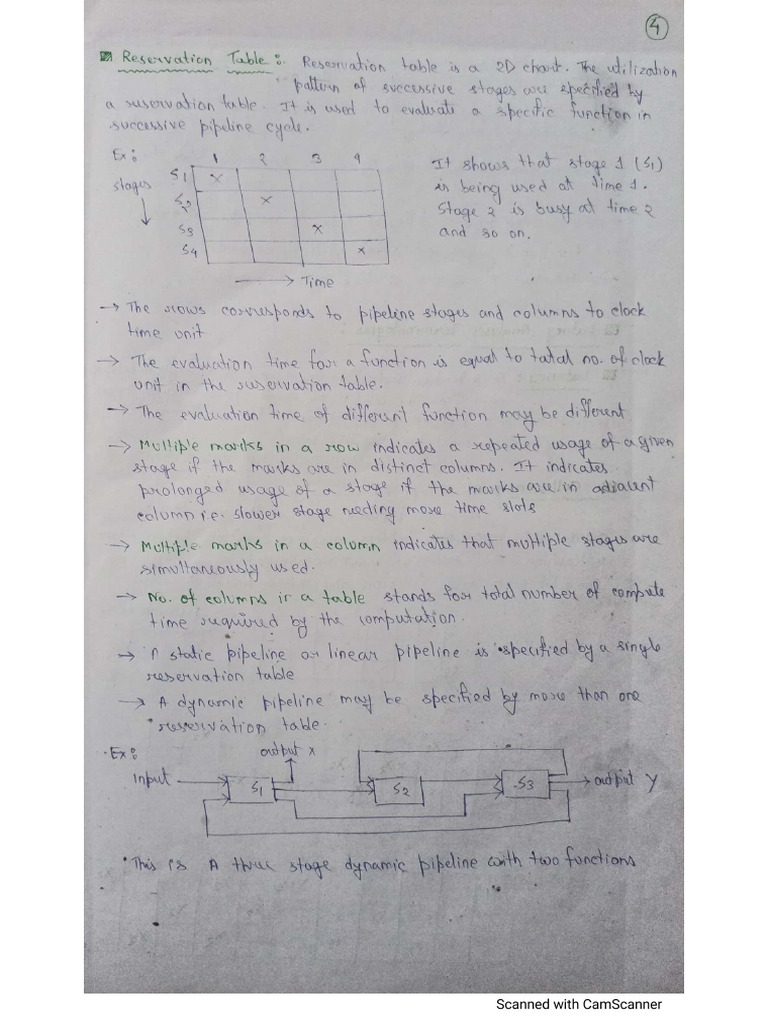 4
Reservation Table: Reservation table is a 2D chart. The utilization
pattern of successive stages are specified by
a reservation table. It is used to evaluate a specific function in
successive pipeline cycle.
Ex: 1 2 3 4
stages
S1 x
S2 x
S3 x
S4 x
→ Time
It shows that stage 1 (S1)
is being used at time 1.
Stage 2 is busy at time 2
and so on.
→ The rows corresponds to pipeline stages and columns to clock
time unit
→ The evaluation time for a function is equal to total no. of clock
unit in the reservation table.
→ The evaluation time of different function may be different
→ Multiple marks in a row indicates a repeated usage of a given
stage if the marks are in distinct columns. It indicates
prolonged usage of a stage if the marks are in adjacent
column i.e. slower stage needing more time slots
→ Multiple marks in a column indicates that multiple stages are
simultaneously used.
→ No. of columns in a table stands for total number of compute
time required by the computation.
→ A static pipeline or linear pipeline is specified by a single
reservation table
→ A dynamic pipeline may be specified by more than one
reservation table.
Ex: output x
Input S1 S2 S3 output y
This is A three stage dynamic pipeline with two functions
Scanned with CamScanner